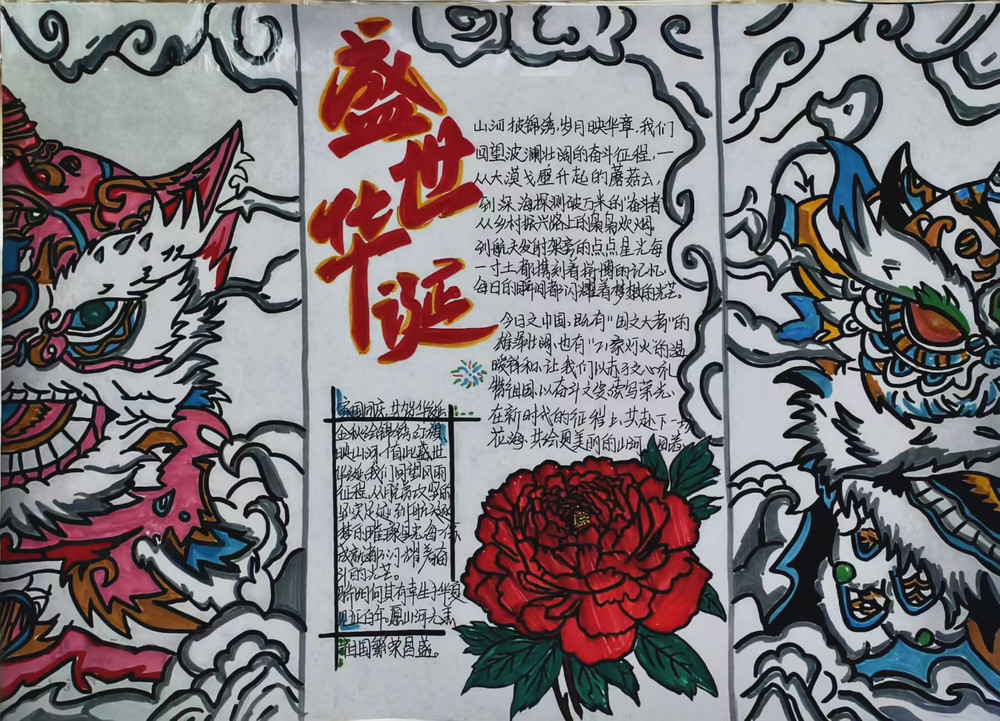 盛世
华诞
山河披锦绣,岁月映华章,我们
回望波澜壮阔的奋斗征程,一
从大漠戈壁升起的蘑菇云,
到深海探测破万米的"奋斗者"
从乡村振兴路上的袅袅炊烟,
到航天发射架旁的点点星光每
一寸土都镌刻着拼搏的记忆
每日的瞬间都闪耀着梦想的光芒。
今日之中国,既有"国之大者"的
雄浑壮阔,也有"万家灯火"的温
暖祥和,让我们以赤子之心礼
赞祖国,以奋斗之姿续写荣光,
在新时代的征程上,共赴下一场
花海,共绘更美丽的山河
家国同庆,共贺华诞
金秋绘锦绣,红旗
映山河,值此盛世
华诞,我们回望风雨
征程,从脱贫攻坚的
坚实足迹到航天
梦的璀璨星光每一
成就都闪耀着奋
斗的光芒。
时间
见证百年,愿山河无恙
祖国繁荣昌盛。